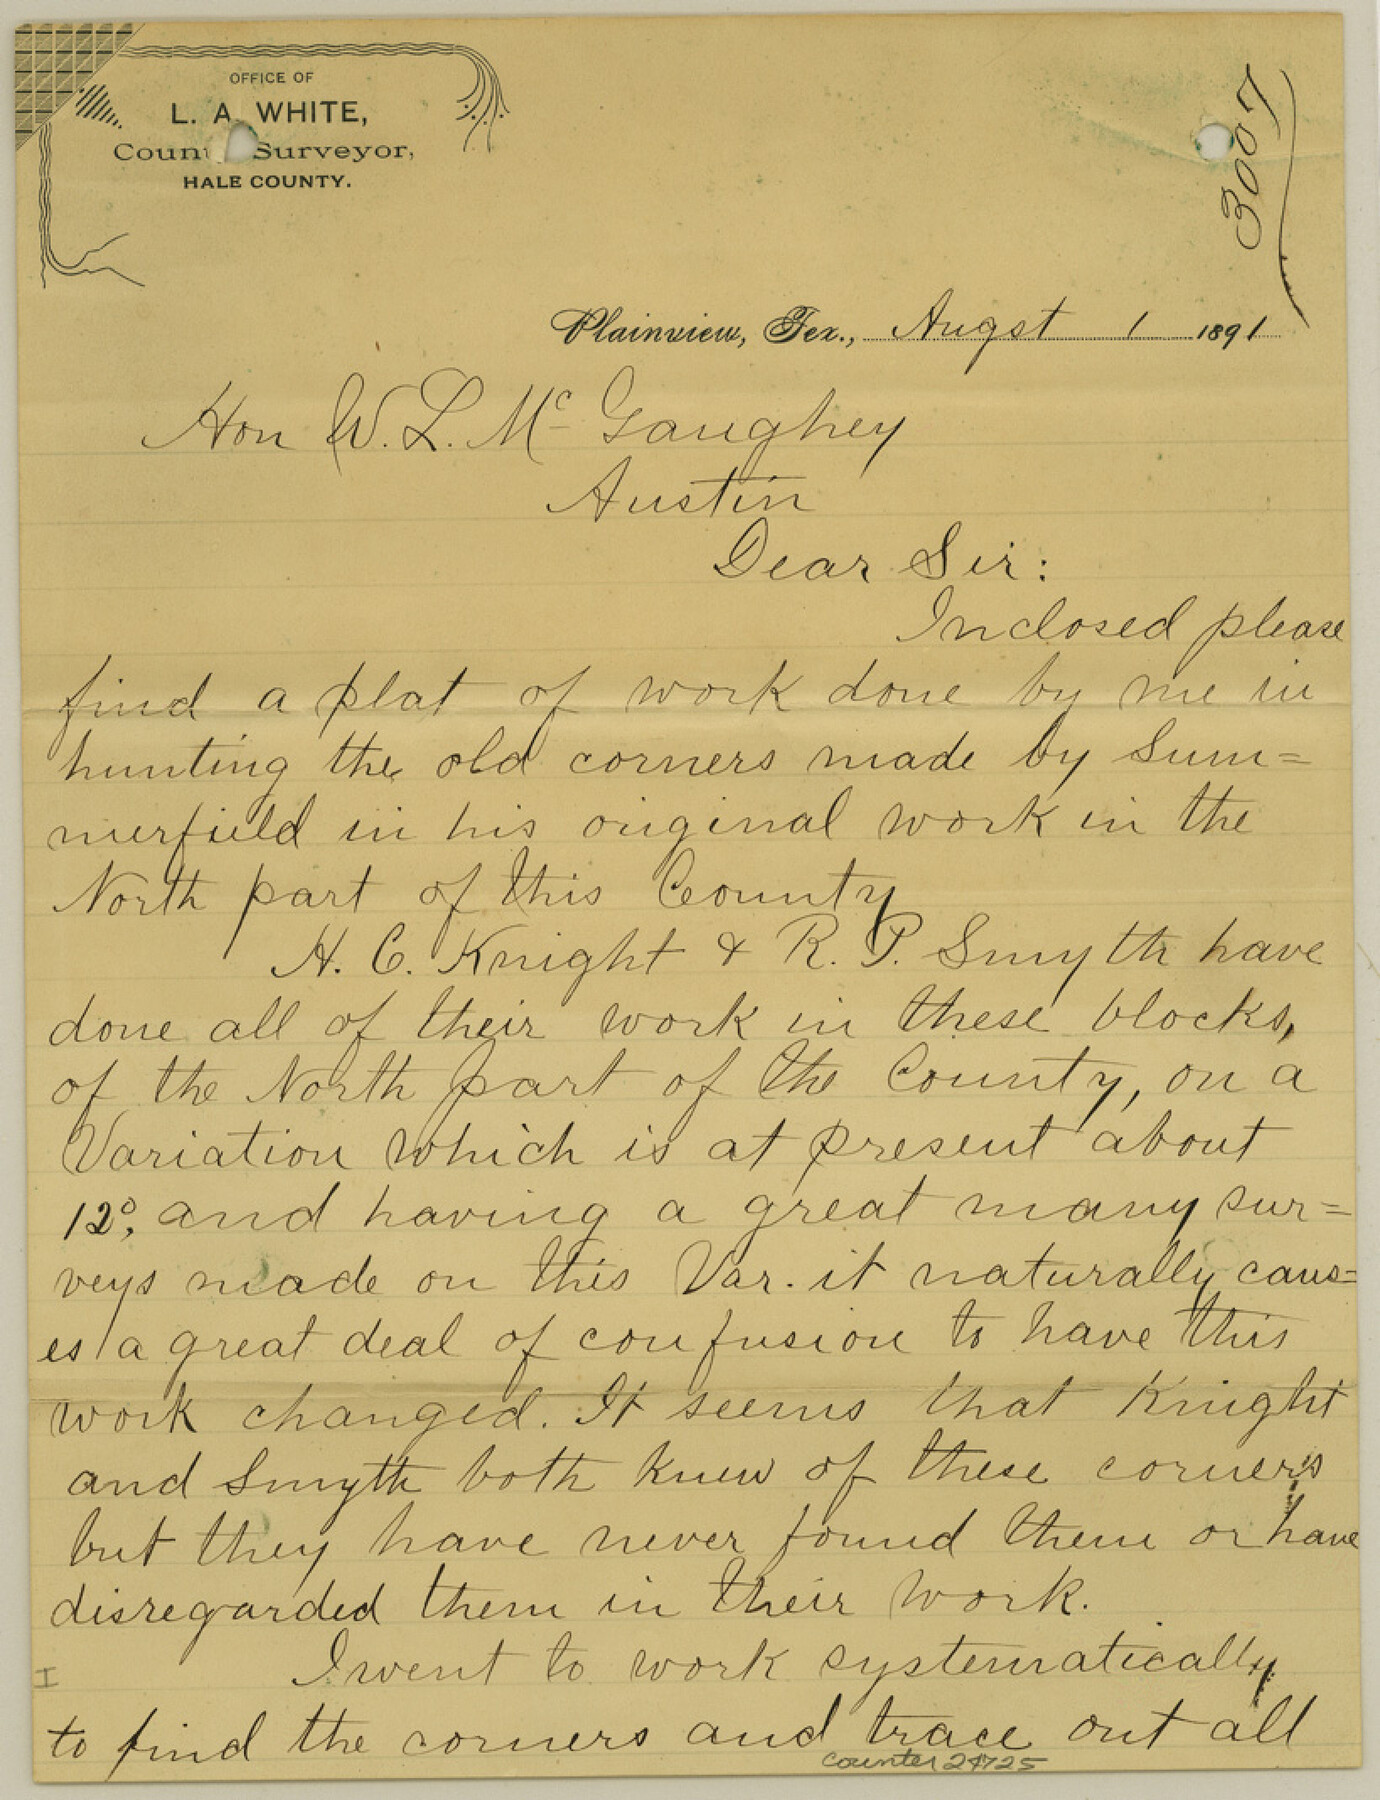 OFFICE OF
L. A. WHITE,
County Surveyor,
HALE COUNTY.
3007
Plainview, Tex., Augst 1 1891
Hon W. L. Mc Gaughey
Austin
Dear Sir:
Inclosed please
find a plat of work done by me in
hunting the old corners made by Sum=
merfield in his original work in the
North part of this County
H. C. Knight & R. P. Smyth have
done all of their work in these blocks,
of the North part of the County, on a
Variation which is at present about
12°, and having a great many sur=
veys made on this Var. it naturally caus=
es a great deal of confusion to have this
work changed. It seems that Knight
and Smyth both knew of these corners
but they have never found them or have
disregarded them in their work.
I went to work systematically
to find the corners and trace out all
counter 24725
I